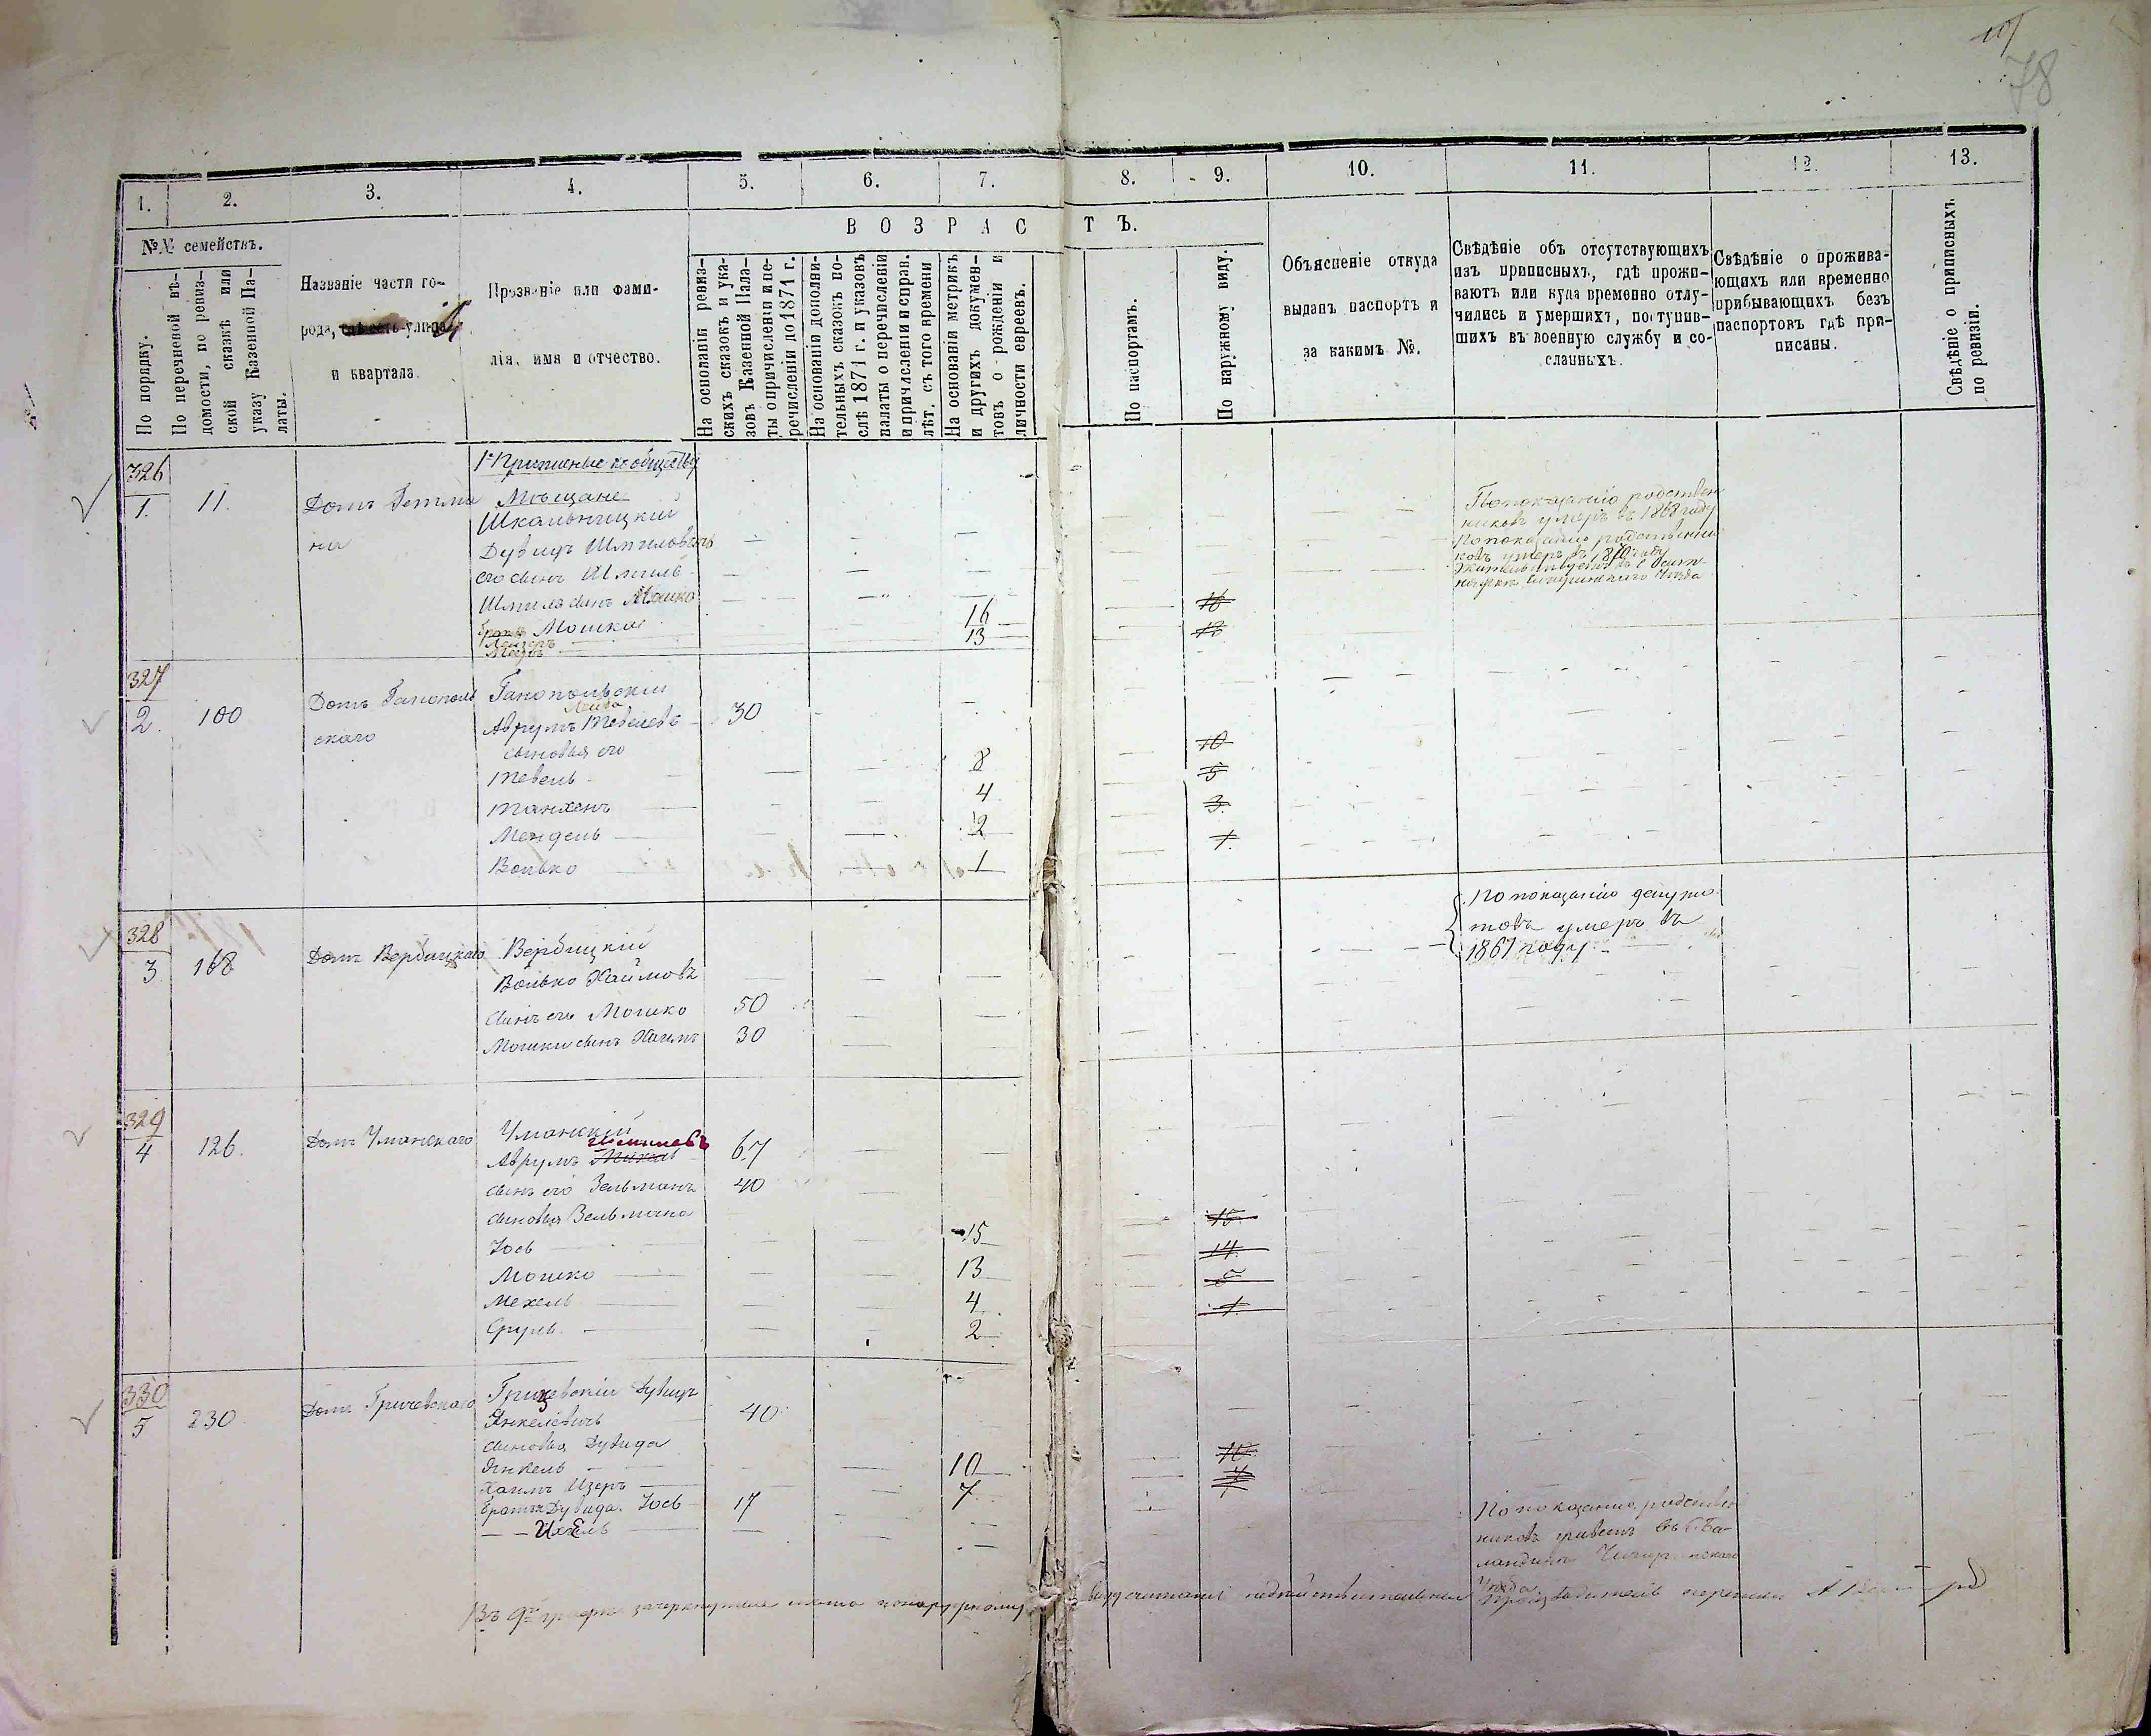 78
1.
2.
3.
4.
5.
6.
7.
8.
9.
10.
11.
12.
13.
№№ семействъ.
В О З Р А С Т Ъ.
По порядку.
По перечневой вѣ-
домости, по ревиз-
ской сказкѣ или
указу Казенной Па-
латы.
Названіе части го-
рода,
и квартала.
Прозваніе или фами-
лія, имя и отчество.
На основаніи ревиз-
скихъ сказокъ и ука-
зовъ Казенной Пала-
ты о причисленіи и пе-
речисленіи до 1871 г.
На основаніи дополни-
тельныхъ сказокъ по-
слѣ 1871 г. и указовъ
палаты о перечисленіи
и причисленіи и справ.
лѣт. съ того времени
На основаніи метрикъ
и другихъ докумен-
товъ о рожденіи и
личности евреевъ.
По паспортамъ.
По наружному виду.
Объясненіе откуда
выданъ паспортъ и
за какимъ №.
Свѣдѣніе объ отсутствующихъ
изъ приписныхъ, гдѣ прожи-
ваютъ или куда временно отлу-
чились и умершихъ, поступив-
шихъ въ военную службу и со-
сланныхъ.
Свѣдѣніе о прожива-
ющихъ или временно
прибывающихъ безъ
паспортовъ гдѣ при-
писаны.
Свѣдѣніе о приписныхъ
по ревизіи.
326
1.
11.
Домъ
на
Приписные къ обществу
Мѣщане
Шкальницкій
Дувидъ Шмиловъ
его сынъ Шмиль
Шмиля сынъ Мошко
братья Мошка
Лейзеръ
16
13
16
13
По показанію родствен
никовъ умеръ въ 1868 году
По показанію родственни
ковъ умеръ въ
327
2.
100
Домъ Ганополь
скаго
Ганопольскій
Лейба
Аврумъ Тевелевъ
30
сыновья его
Тевель
8
10
Танхенъ
4
5
Мендель
2
3
Волько
1
1
328
3
168
Домъ Вербицкаго
Вербицкій
Волько Хаимовъ
сынъ его Мошко
50
Мошки сынъ Хаимъ
30
По показанію депута
товъ умеръ въ
1867 году
329
4
126.
Домъ Уманскаго
Уманскій
Аврумъ
67
сынъ его Зельманъ
40
сыновья Зельмана
Іось
15
15
Мошко
13
14
Мехель
4
5
Сруль
2
1
330
5
230
Домъ Гричевскаго
Гричевскій Дувидъ
Янкелевичъ
40
сыновья Дувида
Янкель
10
10
Хаимъ Изеръ
7
7
братья Дувида Іось
17
Ихель
По показанію родствен
никовъ живетъ въ с. Ба-
ландинѣ Чигиринскаго
уѣзда
Въ 9й графѣ зачеркнутыя лѣта по наружному виду считать недѣйствительными